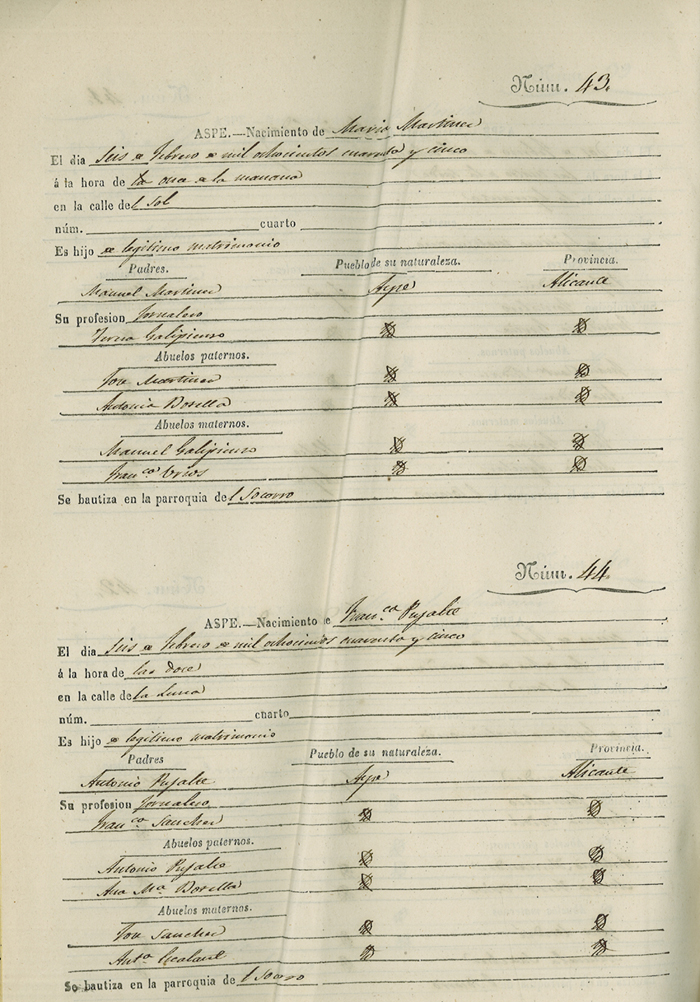 Núm. 43.
ASPE.—Nacimiento de Maria Martinez
El dia Seis de Febrero de mil ochocientos cuarenta y cinco
á la hora de la once de la mañana
en la calle del Sol
núm. cuarto
Es hijo de legitimo matrimonio
Padres. Pueblo de su naturaleza. Provincia.
Manuel Martinez Aspe Alicante
Su profesion Jornalero
Teresa Galipienso
Abuelos paternos.
Martinez
Antonia Botella
Abuelos maternos.
Manuel Galipienso
Franca
Se bautiza en la parroquia del Socorro
Núm. 44
ASPE.—Nacimiento de Franca Pujalte
El dia Seis de Febrero de mil ochocientos cuarenta y cinco
á la hora de las doce
en la calle de la Luna
núm. cuarto
Es hijo de legitimo matrimonio
Padres Pueblo de su naturaleza. Provincia.
Antonio Pujalte Aspe Alicante
Su profesion Jornalero
Franca Sanchez
Abuelos paternos.
Antonio Pujalte
Ana Ma Botella
Abuelos maternos.
Sanchez
Anta
Se bautiza en la parroquia del Socorro